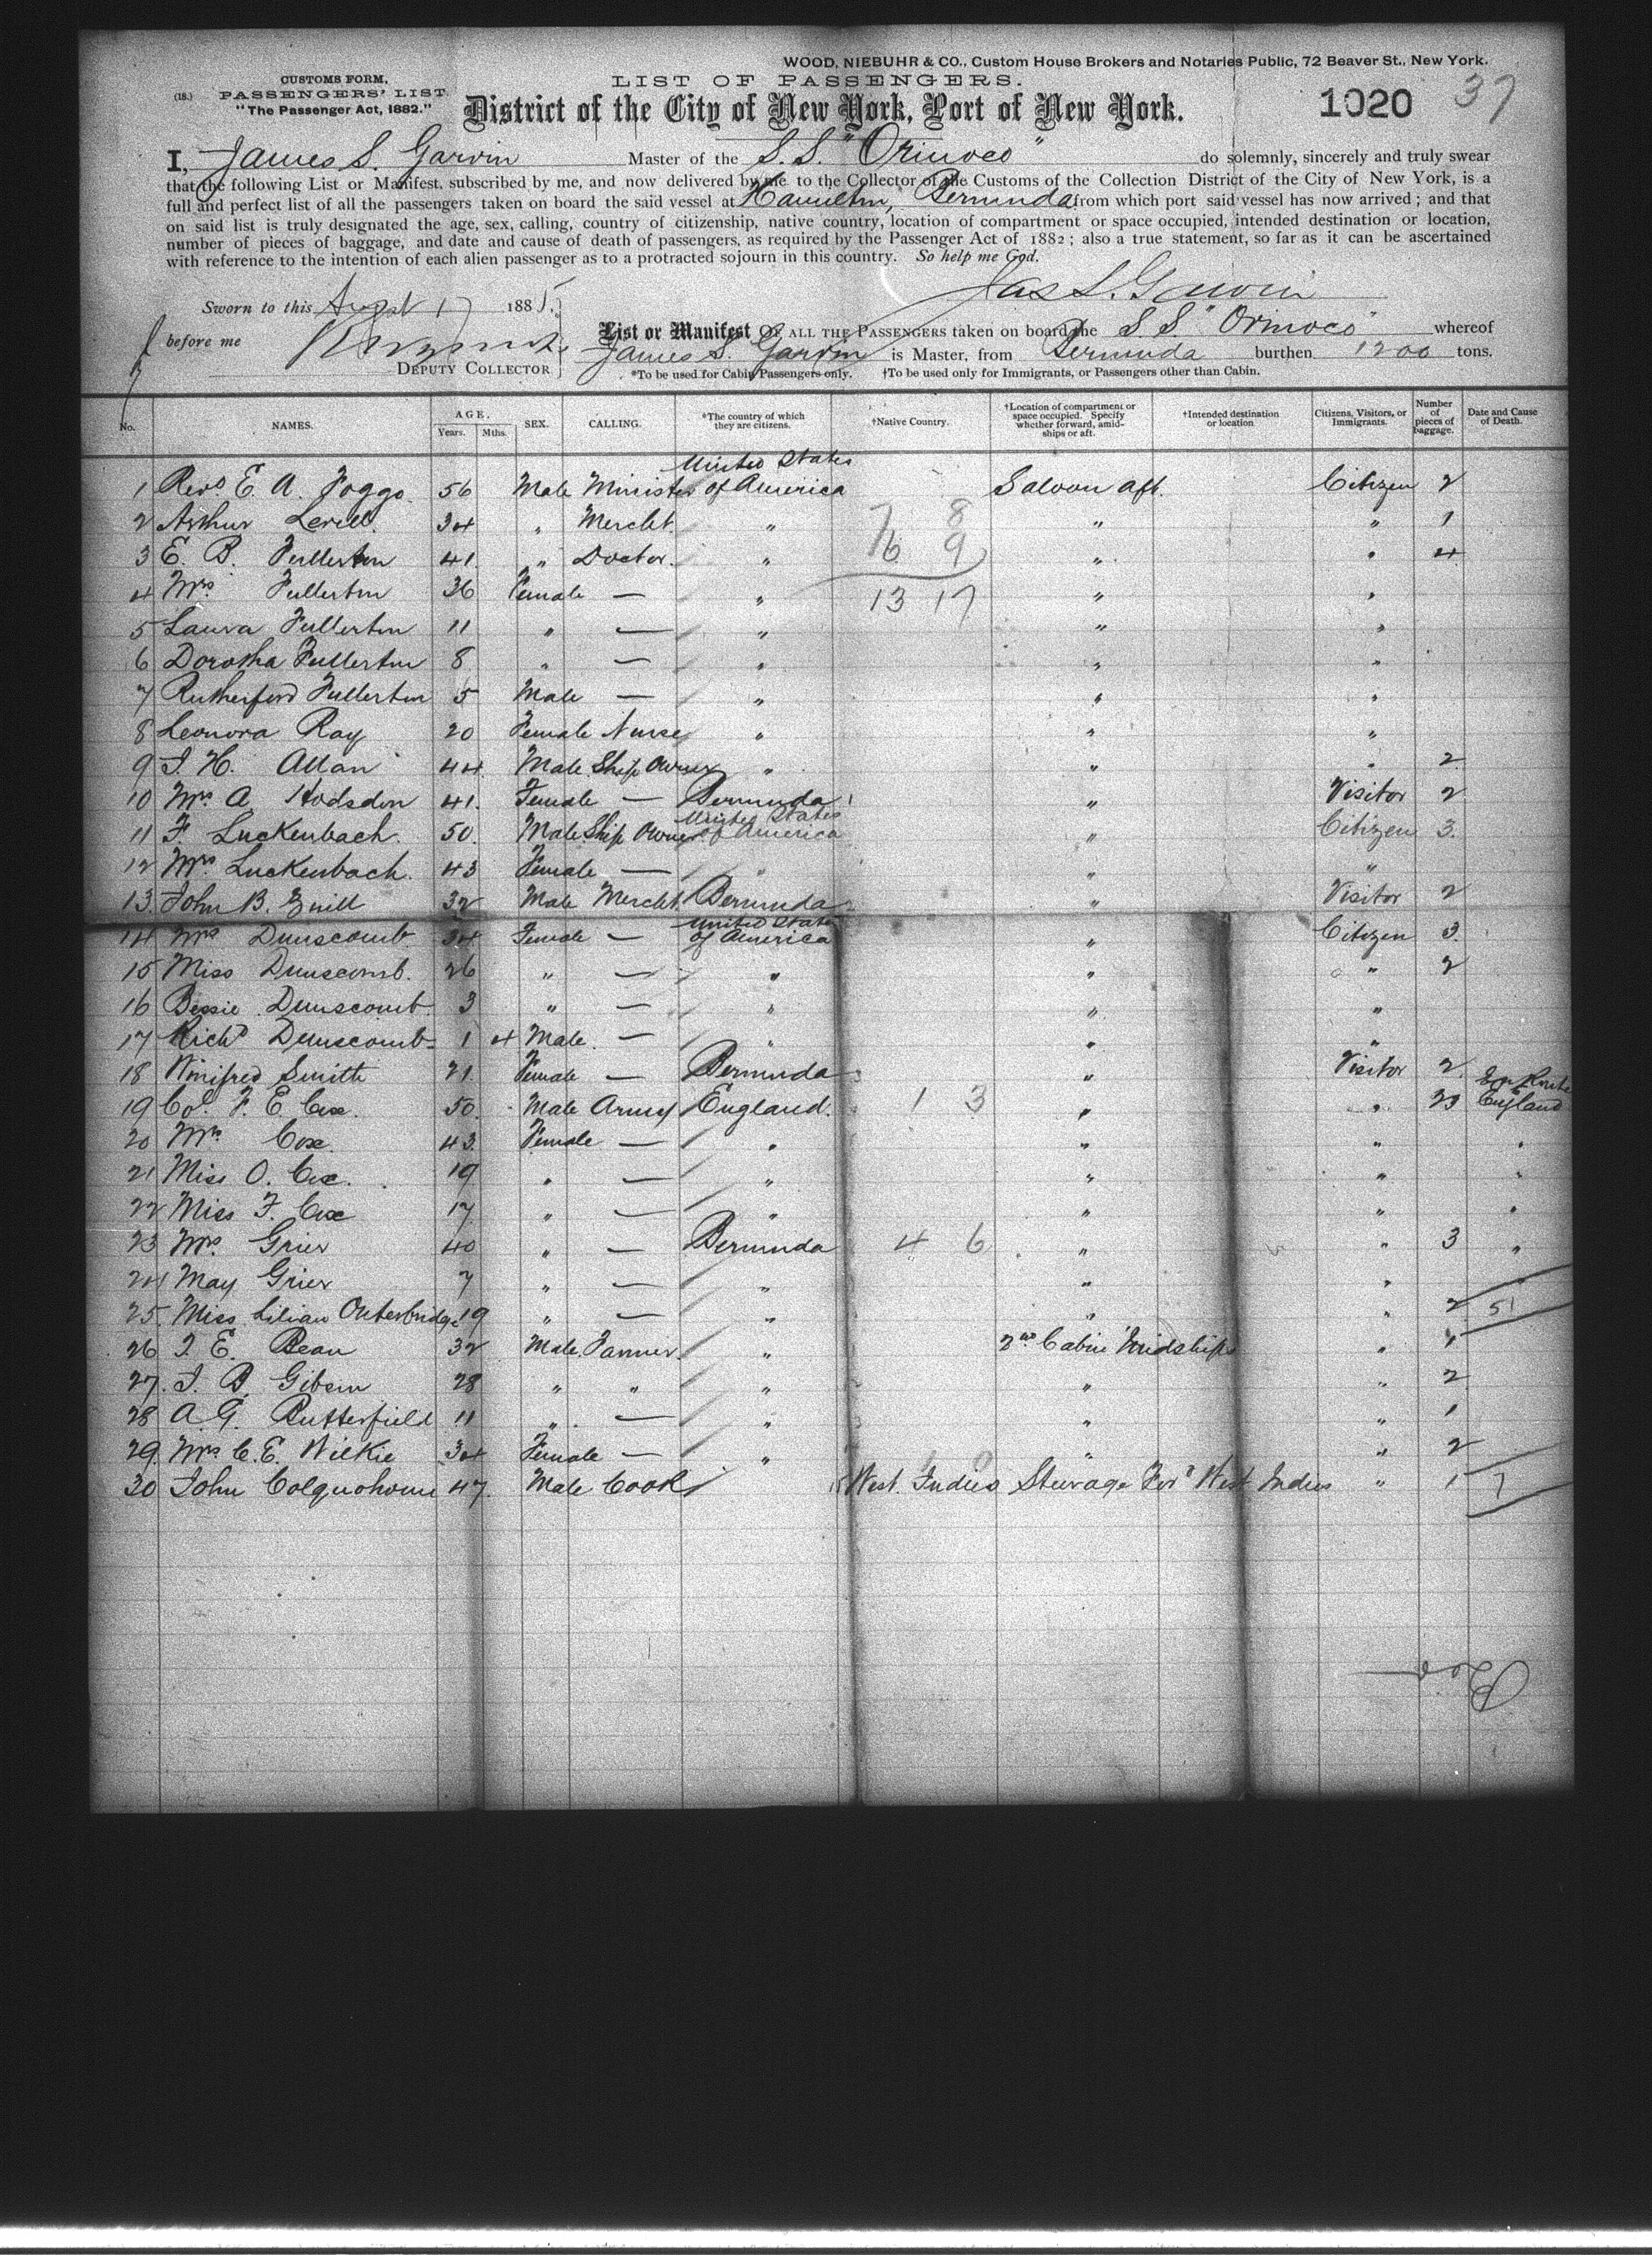 WOOD, NIEBUHR & CO., Custom House Brokers and Notaries Public, 72 Beaver St., New York.
CUSTOMS FORM,
LIST OF PASSENGERS.
(18.) PASSENGERS' LIST.
"The Passenger Act, 1882."
District of the City of New York, Port of New York.
1020 37
I, James S. Garvin Master of the S.S. "Orinoco" do solemnly, sincerely and truly swear
that the following List or Manifest, subscribed by me, and now delivered by me to the Collector of the Customs of the Collection District of the City of New York, is a
full and perfect list of all the passengers taken on board the said vessel at Hamilton, Bermuda from which port said vessel has now arrived; and that
on said list is truly designated the age, sex, calling, country of citizenship, native country, location of compartment or space occupied, intended destination or location,
number of pieces of baggage, and date and cause of death of passengers, as required by the Passenger Act of 1882; also a true statement, so far as it can be ascertained
with reference to the intention of each alien passenger as to a protracted sojourn in this country. So help me God.
Jas S. Garvin
Sworn to this August 17 1885
before me
DEPUTY COLLECTOR
List or Manifest OF ALL THE PASSENGERS taken on board the S.S. "Orinoco" whereof
James S. Garvin is Master, from Bermuda burthen 1200 tons.
*To be used for Cabin Passengers only. †To be used only for Immigrants, or Passengers other than Cabin.
No. NAMES. AGE. Years. Mths. SEX. CALLING. *The country of which they are citizens. †Native Country. †Location of compartment or space occupied. Specify whether forward, amidships or aft. †Intended destination or location Citizens, Visitors, or Immigrants. Number of pieces of baggage. Date and Cause of Death.
1 Revd. E. A. Foggo 56 Male Minister United States of America Saloon aft. Citizen 2
2 Arthur 34 " Mercht. " 7 8 " " 1
3 E. B. Fullerton 41. " Doctor. " 6 9 " " 4
4 Mrs Fullerton 36 Female — " 13 17 " "
5 Laura Fullerton 11 " — " " "
6 Dorotha Fullerton 8 " — " " "
7 Rutherford Fullerton 5 Male — " " "
8 Leonora Ray 20 Female Nurse " " "
9 J. H. Allan 44 Male Ship Owner " " " 2
10 Mrs A. Hodsdon 41. Female — Bermuda 1 " Visitor 2
11 F. Luckenbach. 50. Male Ship Owner United States of America " Citizen 3.
12 Mrs Luckenbach. 43 Female — " " "
13. John B. Zuill 32 Male Mercht Bermuda 2 " Visitor 2
14 Mrs Dunscomb. 34 Female — United States of America " Citizen 3.
15 Miss Dunscomb. 26 " — " " " 2
16 Bessie Dunscomb 3 " — " " "
17 Richd Dunscomb 1 4 Male. — " " "
18 Winifred Smith 21. Female — Bermuda 3 " Visitor 2
19 Col. F. E. Cox. 50. Male Army England. 1 3 " " 23 En Route England
20 Mrs Cox. 43. Female — " " " "
21 Miss O. Cox. 19 " — " " " "
22 Miss F. Cox 17 " — " " " "
23 Mrs. Grier 40 " — Bermuda 4 6 " " 3 "
24 May Grier 7 " — " " " "
25. Miss Lilian Outerbridge 19 " — " " " 2 51
26 J. E. Bean 32 Male. Farmer. " 2nd Cabin Midships " 1
27. J. B. Gibson 28 " " " " " 2
28 A. G. Butterfield 11 " — " " " 1
29. Mrs C. E. Wilkie 34 Female — " " " 2
30 John Colquohoun 47. Male Cook West. Indies Steerage For'd West Indies " 1 7